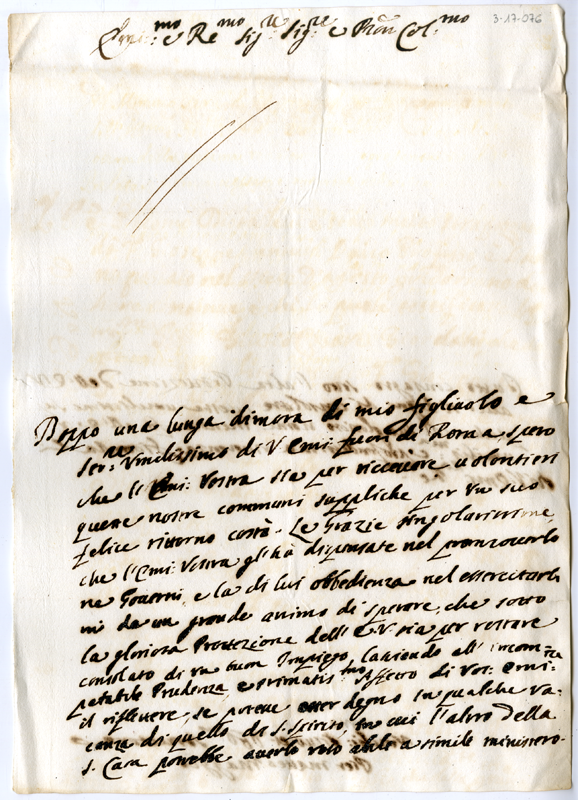 3-17-076
Emi:mo e Remo Sigre Sigre e Pron Col:mo
Doppo una lunga dimora di mio figliuolo e
ser:re Vmilissimo di V Emi: fuori di Roma, spero
che l'Emi: Vostra sia per riceuere uolontieri
queste nostre communi suppliche per vn suo
felice ritorno costà. Le Grazie singolarissime,
che l'Emi: Vostra gli hà dispensate nel promouerlo
ne Gouerni, e la di lui obbedienza nel essercitarli
mi da un grande animo di sperare, che sotto
la gloriosa Protezzione dell' E V. sia per restare
consolato di vn buon Impiego, lasciendo all' incom
patabile Prudenza, e Affetto di Vos: Emi:
il riflettere, se potesse esser degno in qualche va-
canza di quello di S. Spirito, in cui l'altro della
S. Casa potrebbe auerlo reso abile a simile ministero.